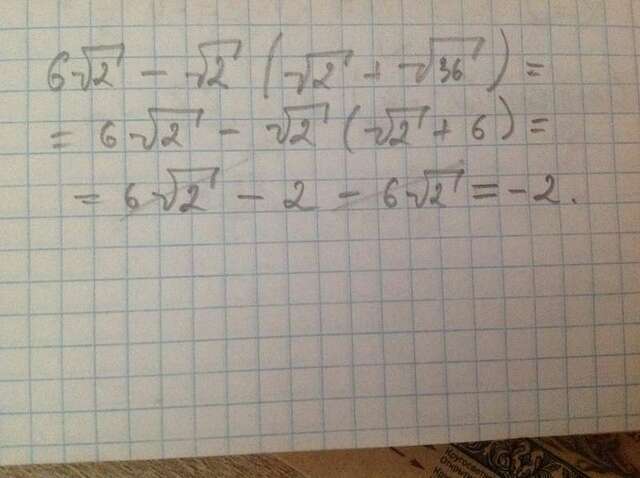 6√2 − √2 (√2 + √36) =
= 6√2 − √2 (√2 + 6) =
= 6√2 − 2 − 6√2 = −2.